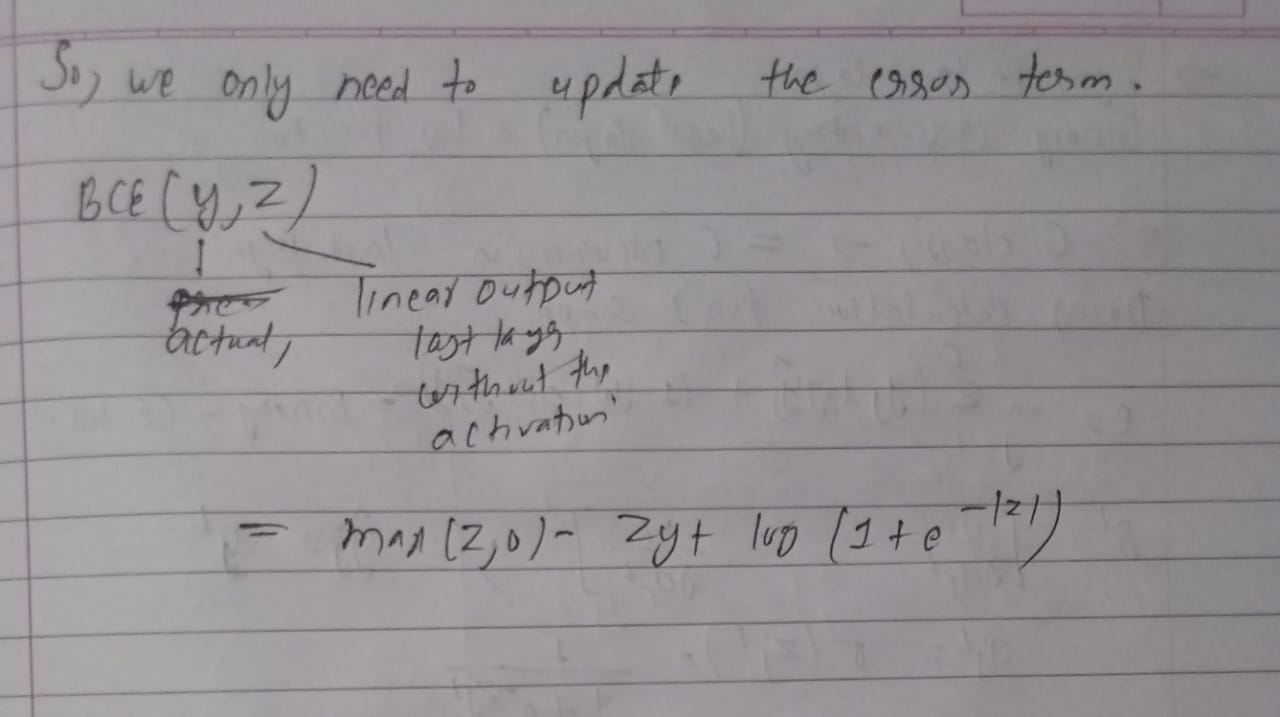 So, we only need to update the error term.
BCE (y, z)
actual,
linear output
last laye
without the
activation
= max (z, 0) - zy + log (1 + e^-|z|)